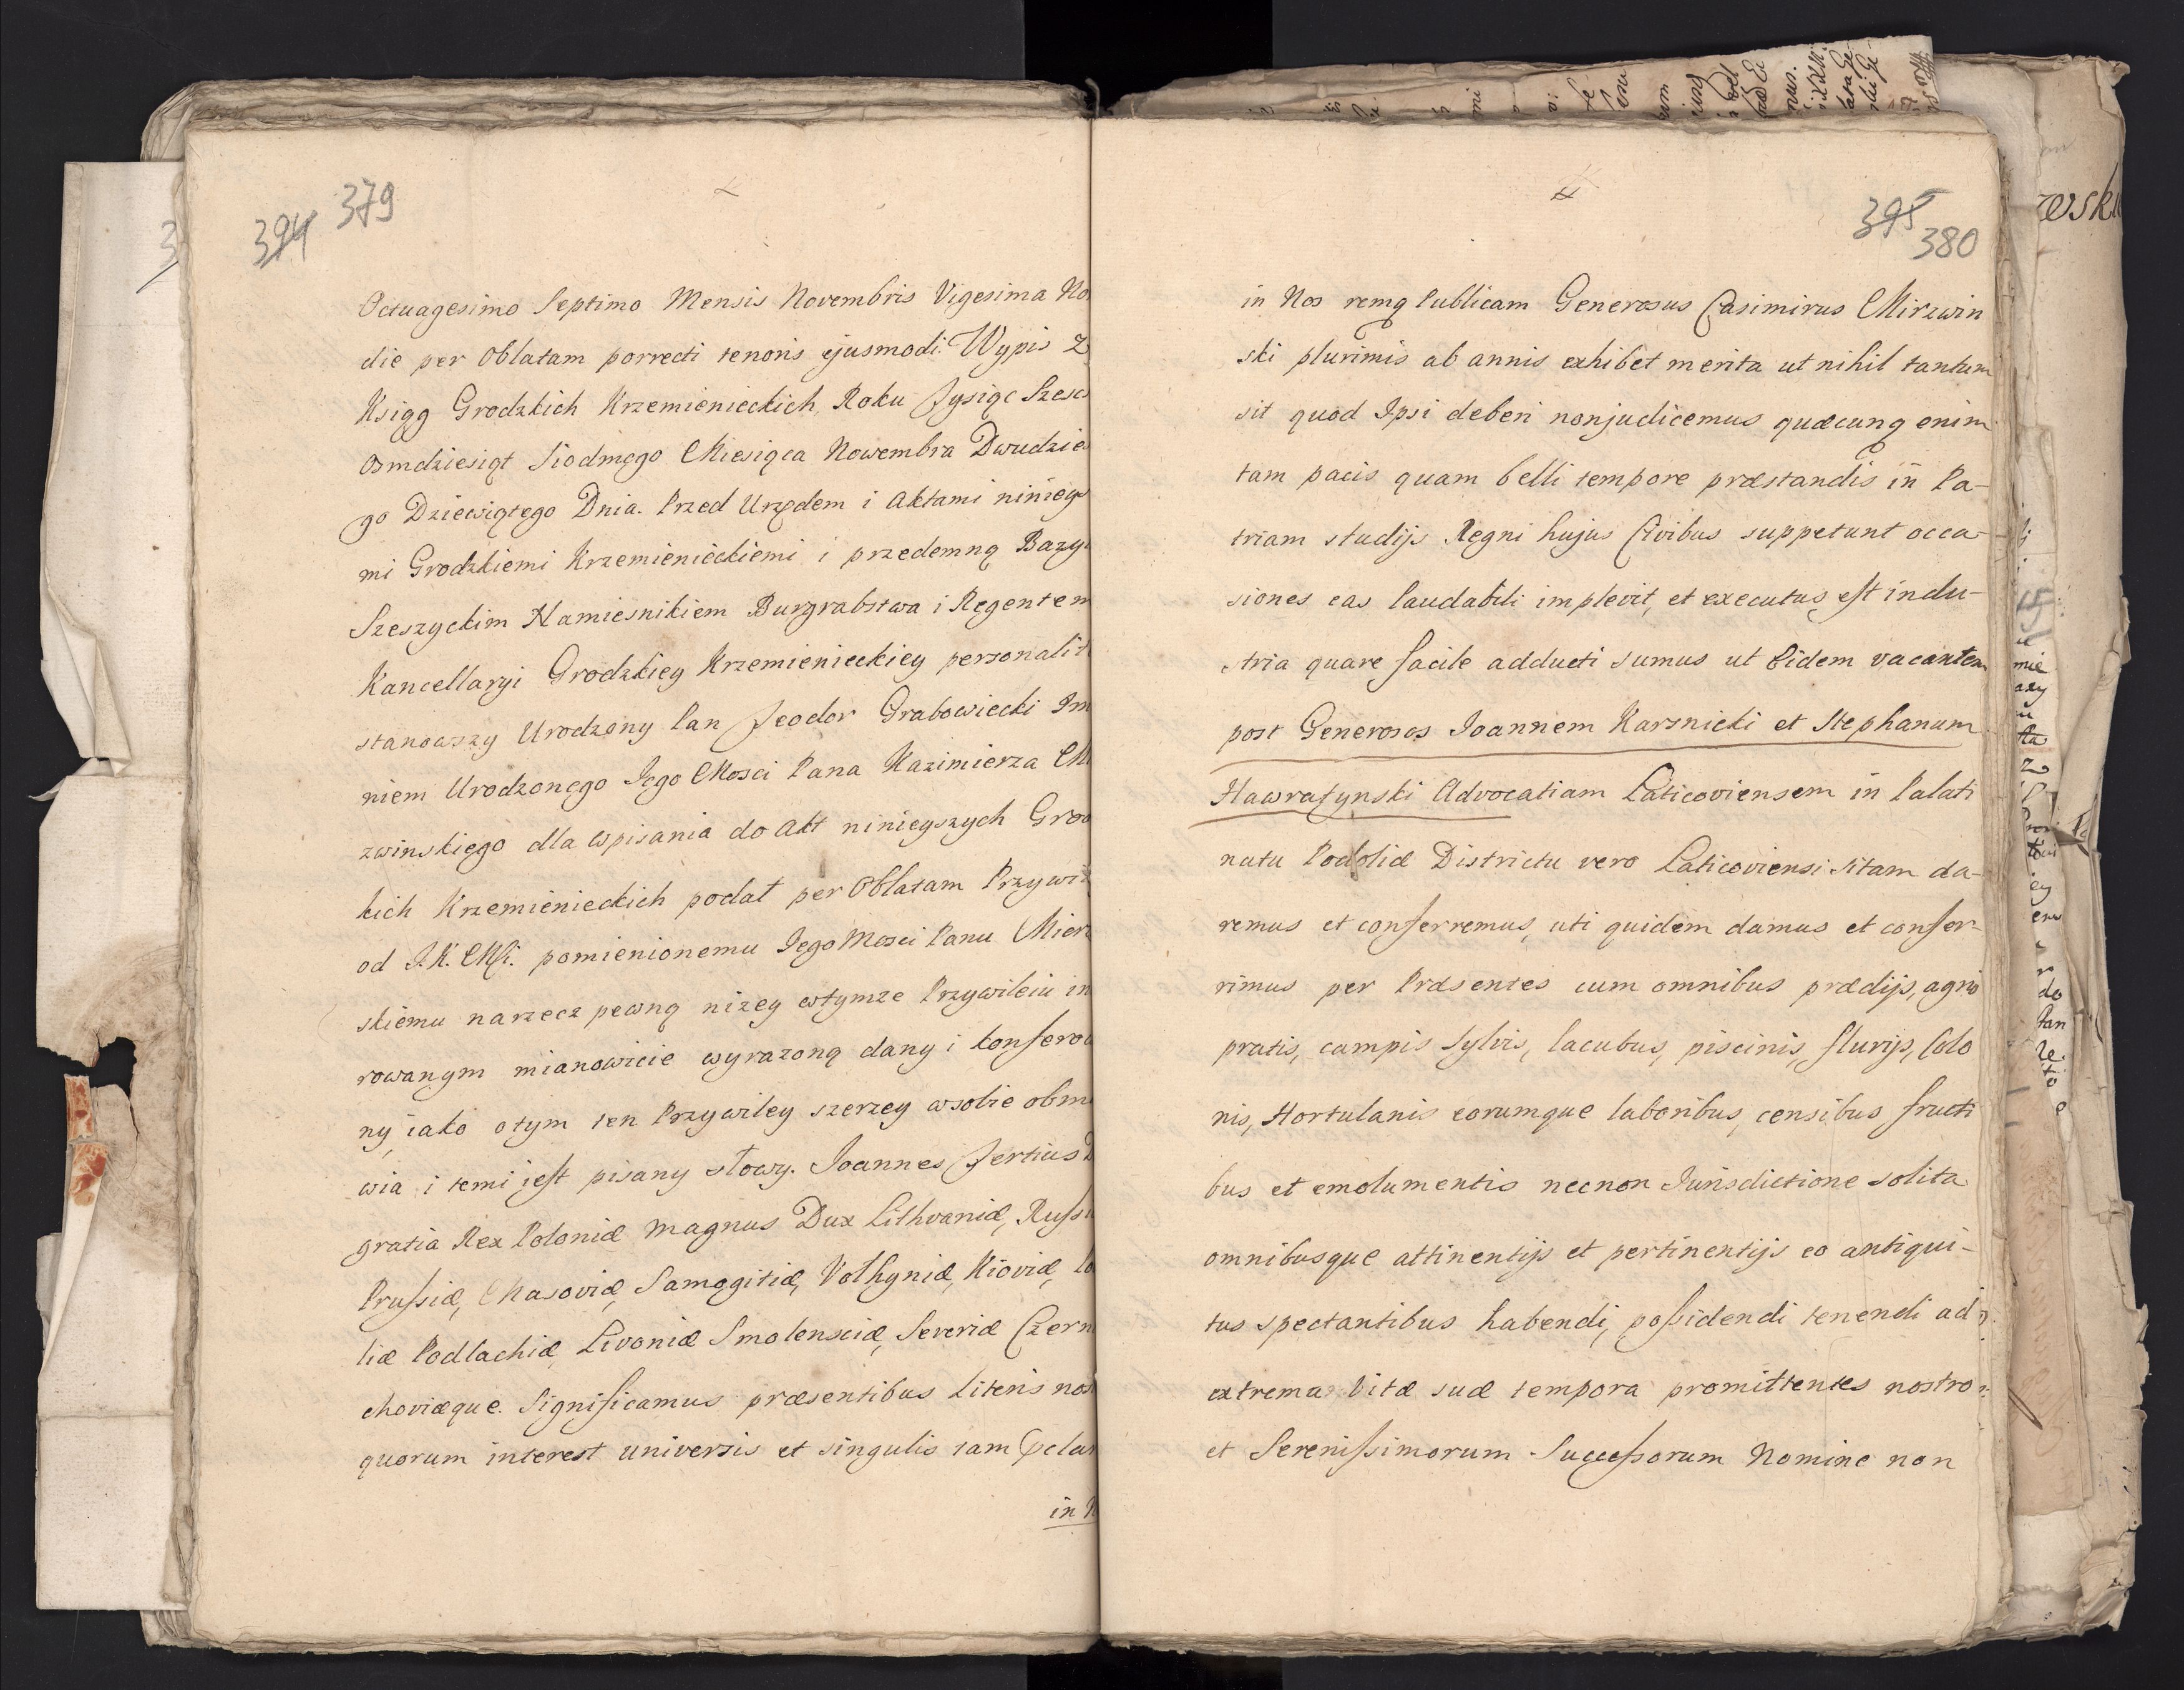 394 379
Octuagesimo Septimo Mensis Novembris Vigesima No
die per Oblatam porrecti tenoris ejusmodi. Wypis z
Ksiąg Grodzkich Krzemienieckich, Roku Tysiąc Szesc
Osmdziesiąt Siodmego Miesiąca Nowembra Dwudzies
go Dziewiątego Dnia. Przed Urzędem i Aktami ninieys
mi Grodzkiemi Krzemienieckiemi i przedemną Bazy
Szeszyckim Namiesnikiem Burgrabstwa i Regentem
Kancellaryi Grodzkiey Krzemienieckiey personalit
stanowszy Urodzony Pan Teodor Grabowiecki Im
niem Urodzonego Jego Mosci Pana Kazimierza Mi
zwinskiego dla wpisania do Akt ninieyszych Grod
kich Krzemienieckich podał per Oblatam Przywil
od J.K. Msi. pomienionemu Jego Mosci Panu Mierz
skiemu narzecz pewną nizey wtymze Przywileiu in
rowanym mianowicie wyrazoną dany i konferow
ny, iako otym ten Przywiley szerzey wsobie obm
wia i temi iest pisany słowy. Joannes Tertius D
gratia Rex Poloniæ Magnus Dux Lithvaniæ, Russi
Prussiæ, Masoviæ, Samogitiæ, Volhyniæ, Kioviæ, Po
liæ Podlachiæ, Livoniæ Smolensciæ, Severiæ Czern
choviæque. Significamus præsentibus Literis nos
quorum interest universis et singulis tam
in N
395 380
in Nos remq Publicam Generosus Casimirus Mirzwin
ski plurimis ab annis exhibet merita ut nihil tantum
sit quod Ipsi deberi nonjudicemus quæcunq enim
tam pacis quam belli tempore præstandis in Pa-
triam studijs Regni hujus Civibus suppetunt occa-
siones eas laudabili implevit, et executus est indu-
stria quare facile adducti sumus ut Eidem vacantem
post Generosos Joannem Karsnicki et Stephanum
Hawratynski Advocatiam Laticoviensem in Palati
natu Podoliæ Districtu vero Laticoviensi sitam da-
remus et conferremus, uti quidem damus et confer-
rimus per Præsentes cum omnibus prædijs, agris
pratis, campis sylvis, lacubus, piscinis, fluvijs, Colo
nis, Hortulanis eorumque laboribus, censibus fructi
bus et emolumentis necnon Jurisdictione solita
omnibusque attinentijs et pertinentijs eo antiqui-
tus spectantibus habendi, possidendi tenendi ad
extrema Vitæ suæ tempora promittentes nostro
et Serenissimorum Successorum Nomine non